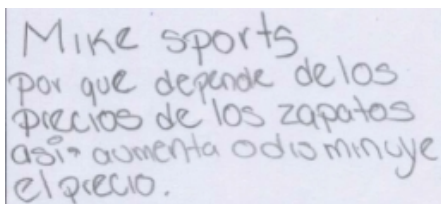 Mike sports
por que depende de los
precios de los zapatos
asi aumenta o disminuye
el precio.